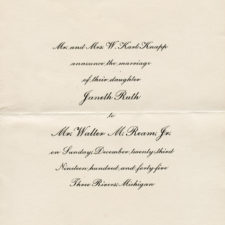 Mr. and Mrs. W. Karl Knapp
announce the marriage
of their daughter
Janeth Ruth
to
Mr. Walter M. Ream, Jr.
on Sunday, December, twenty-third
Nineteen hundred and forty-five
Three Rivers, Michigan